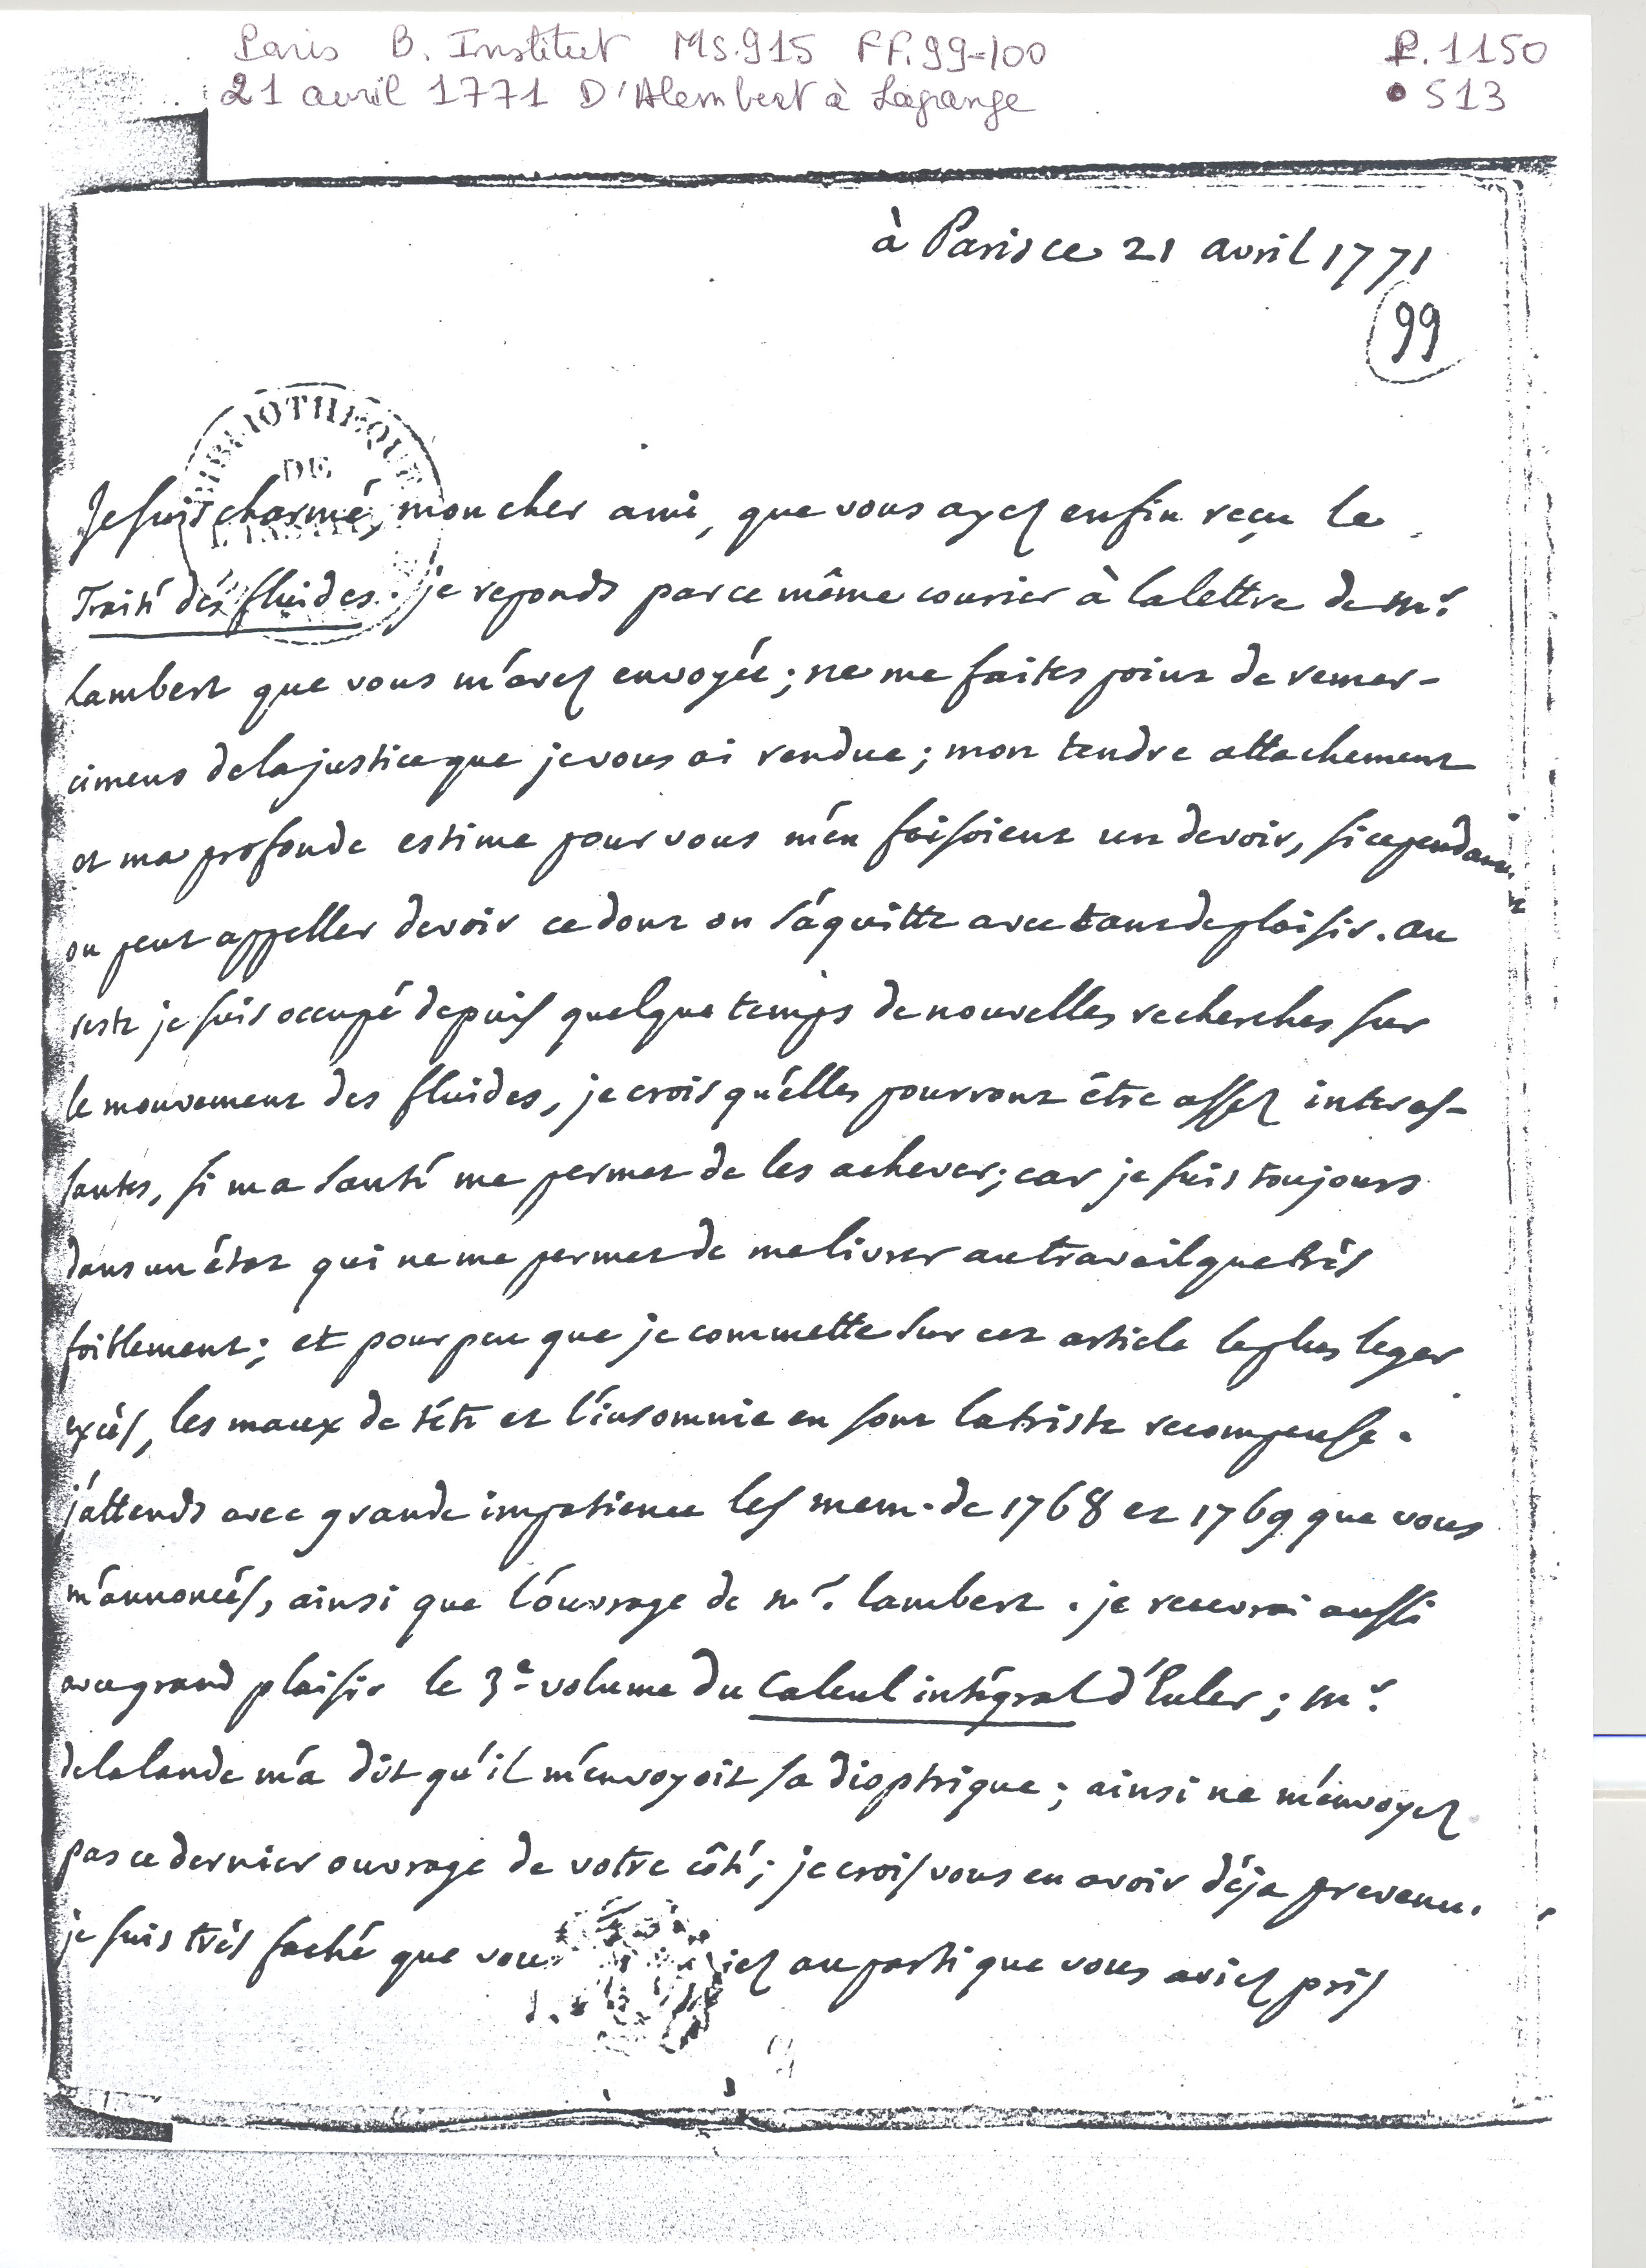 Paris B. Institut MS.915 FF.99-100
P.1150
21 avril 1771 D'Alembert à Lagrange
• 513
à Paris ce 21 avril 1771
99
BIBLIOTHEQUE
DE
Je suis charmé, mon cher ami, que vous ayez enfin reçu le
Traité des fluides. je reponds par ce même courier à la lettre de mr.
Lambert que vous m'avez envoyée; ne me faites point de remer-
cimens de la justice que je vous ai rendue; mon tendre attachement
et ma profonde estime pour vous m'en faisoient un devoir, si cependant
on peut appeller devoir ce dont on s'aquitte avec tant de plaisir. au
reste je suis occupé depuis quelque temps de nouvelles recherches sur
le mouvement des fluides, je crois qu'elles pourront être assez interes-
santes, si ma santé me permet de les achever; car je suis toujours
dans un état qui ne me permet de me livrer au travail que très
foiblement; et pour peu que je commette sur cet article le plus leger
excès, les maux de tête et l'insomnie en sont la triste recompense.
j'attends avec grande impatience les mem. de 1768 et 1769 que vous
m'annoncés, ainsi que l'ouvrage de mr. lambert. je recevrai aussi
avec grand plaisir le 3e volume du Calcul intégral d'Euler; mr.
de la lande m'a dit qu'il m'envoyoit sa dioptrique; ainsi ne m'envoyez
pas ce dernier ouvrage de votre côté; je crois vous en avoir déja prevenu.
je suis très faché que vous au parti que vous aviez pris